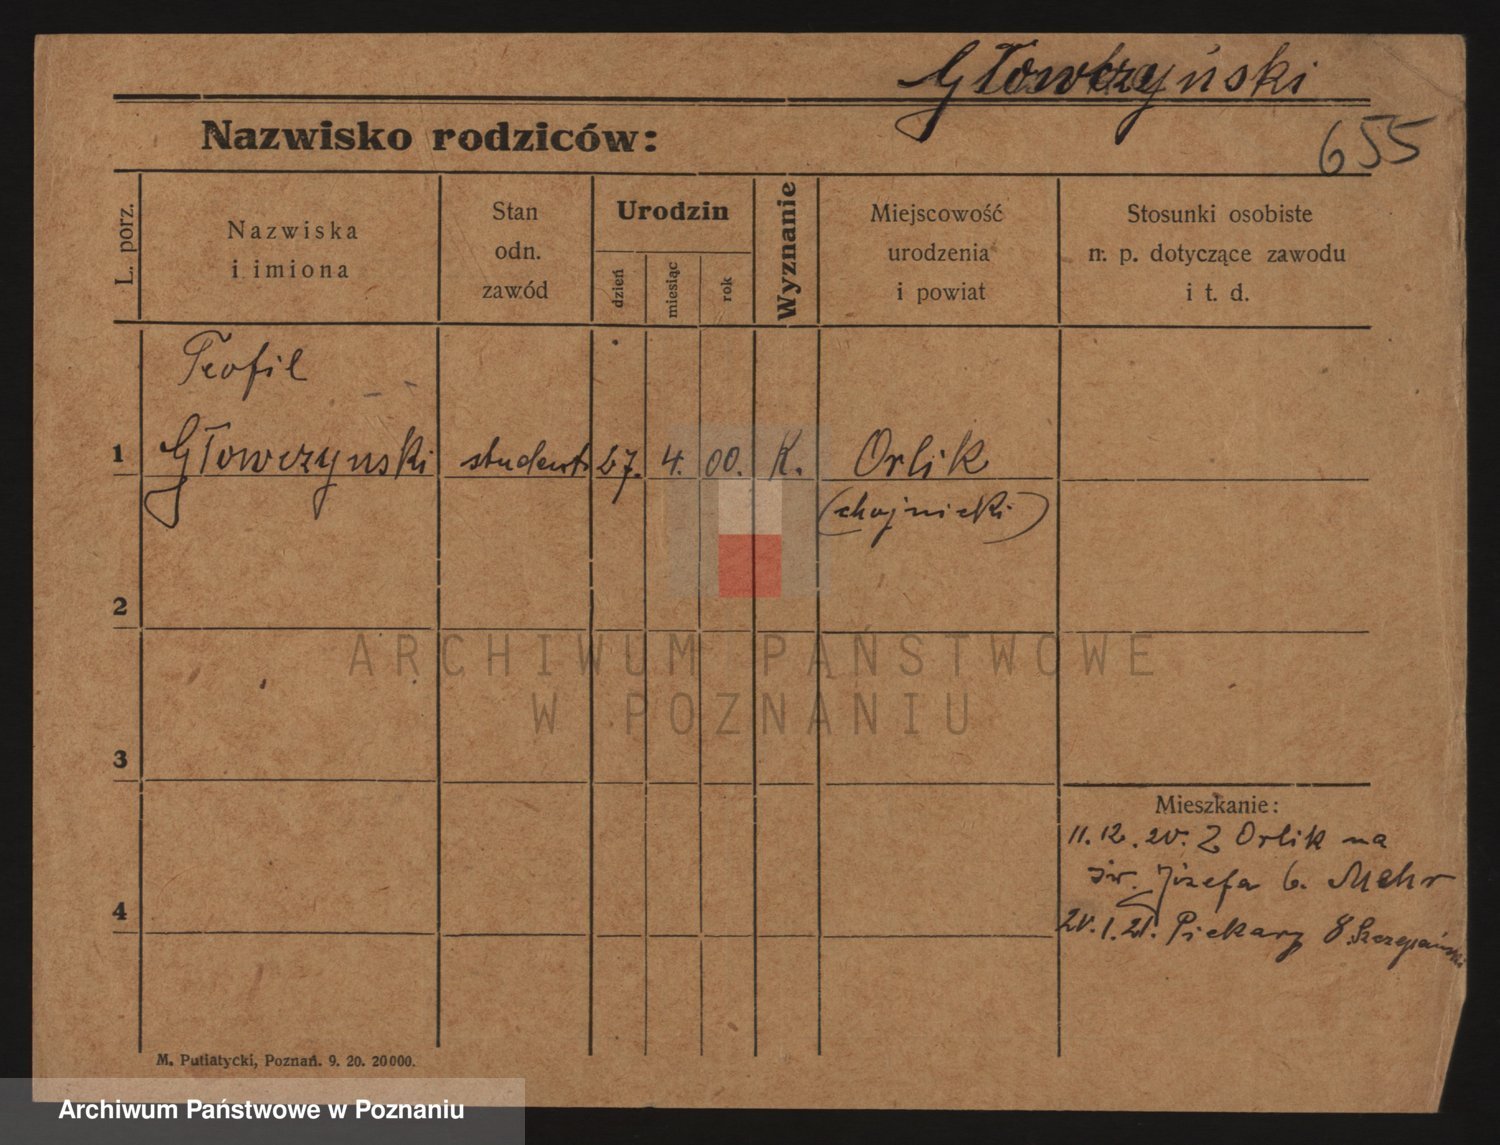 Głowczyński
655
Nazwisko rodziców:
L. porz.
Nazwiska
i imiona
Stan
odn.
zawód
Urodzin
dzień
miesiąc
rok
Wyznanie
Miejscowość
urodzenia
i powiat
Stosunki osobiste
n. p. dotyczące zawodu
i t. d.
Teofil
1 Głowczynski student 27. 4. 00. K. Orlik
(chojnicki)
2
3
4
Mieszkanie:
11. 12. 20. Z Orlik na
św. Józefa 6. Mehr
20. 1. 21. Piekary 8. Szczepański
M. Putiatycki, Poznań. 9. 20. 20000.
ARCHIWUM PAŃSTWOWE
W POZNANIU
Archiwum Państwowe w Poznaniu